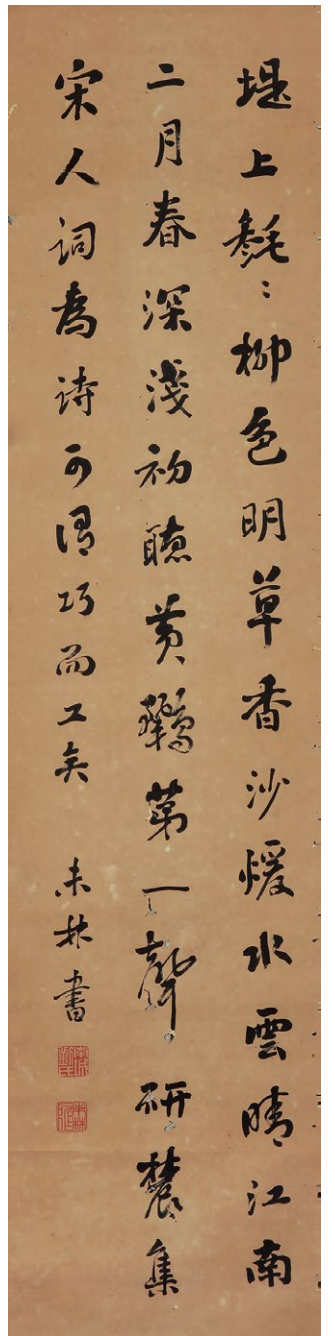 堤上毿〻柳色明草香沙煖水雲晴江南
二月春深淺初聽黃鸝第一聲研農集
宋人詞為詩可謂巧而工矣 未林書